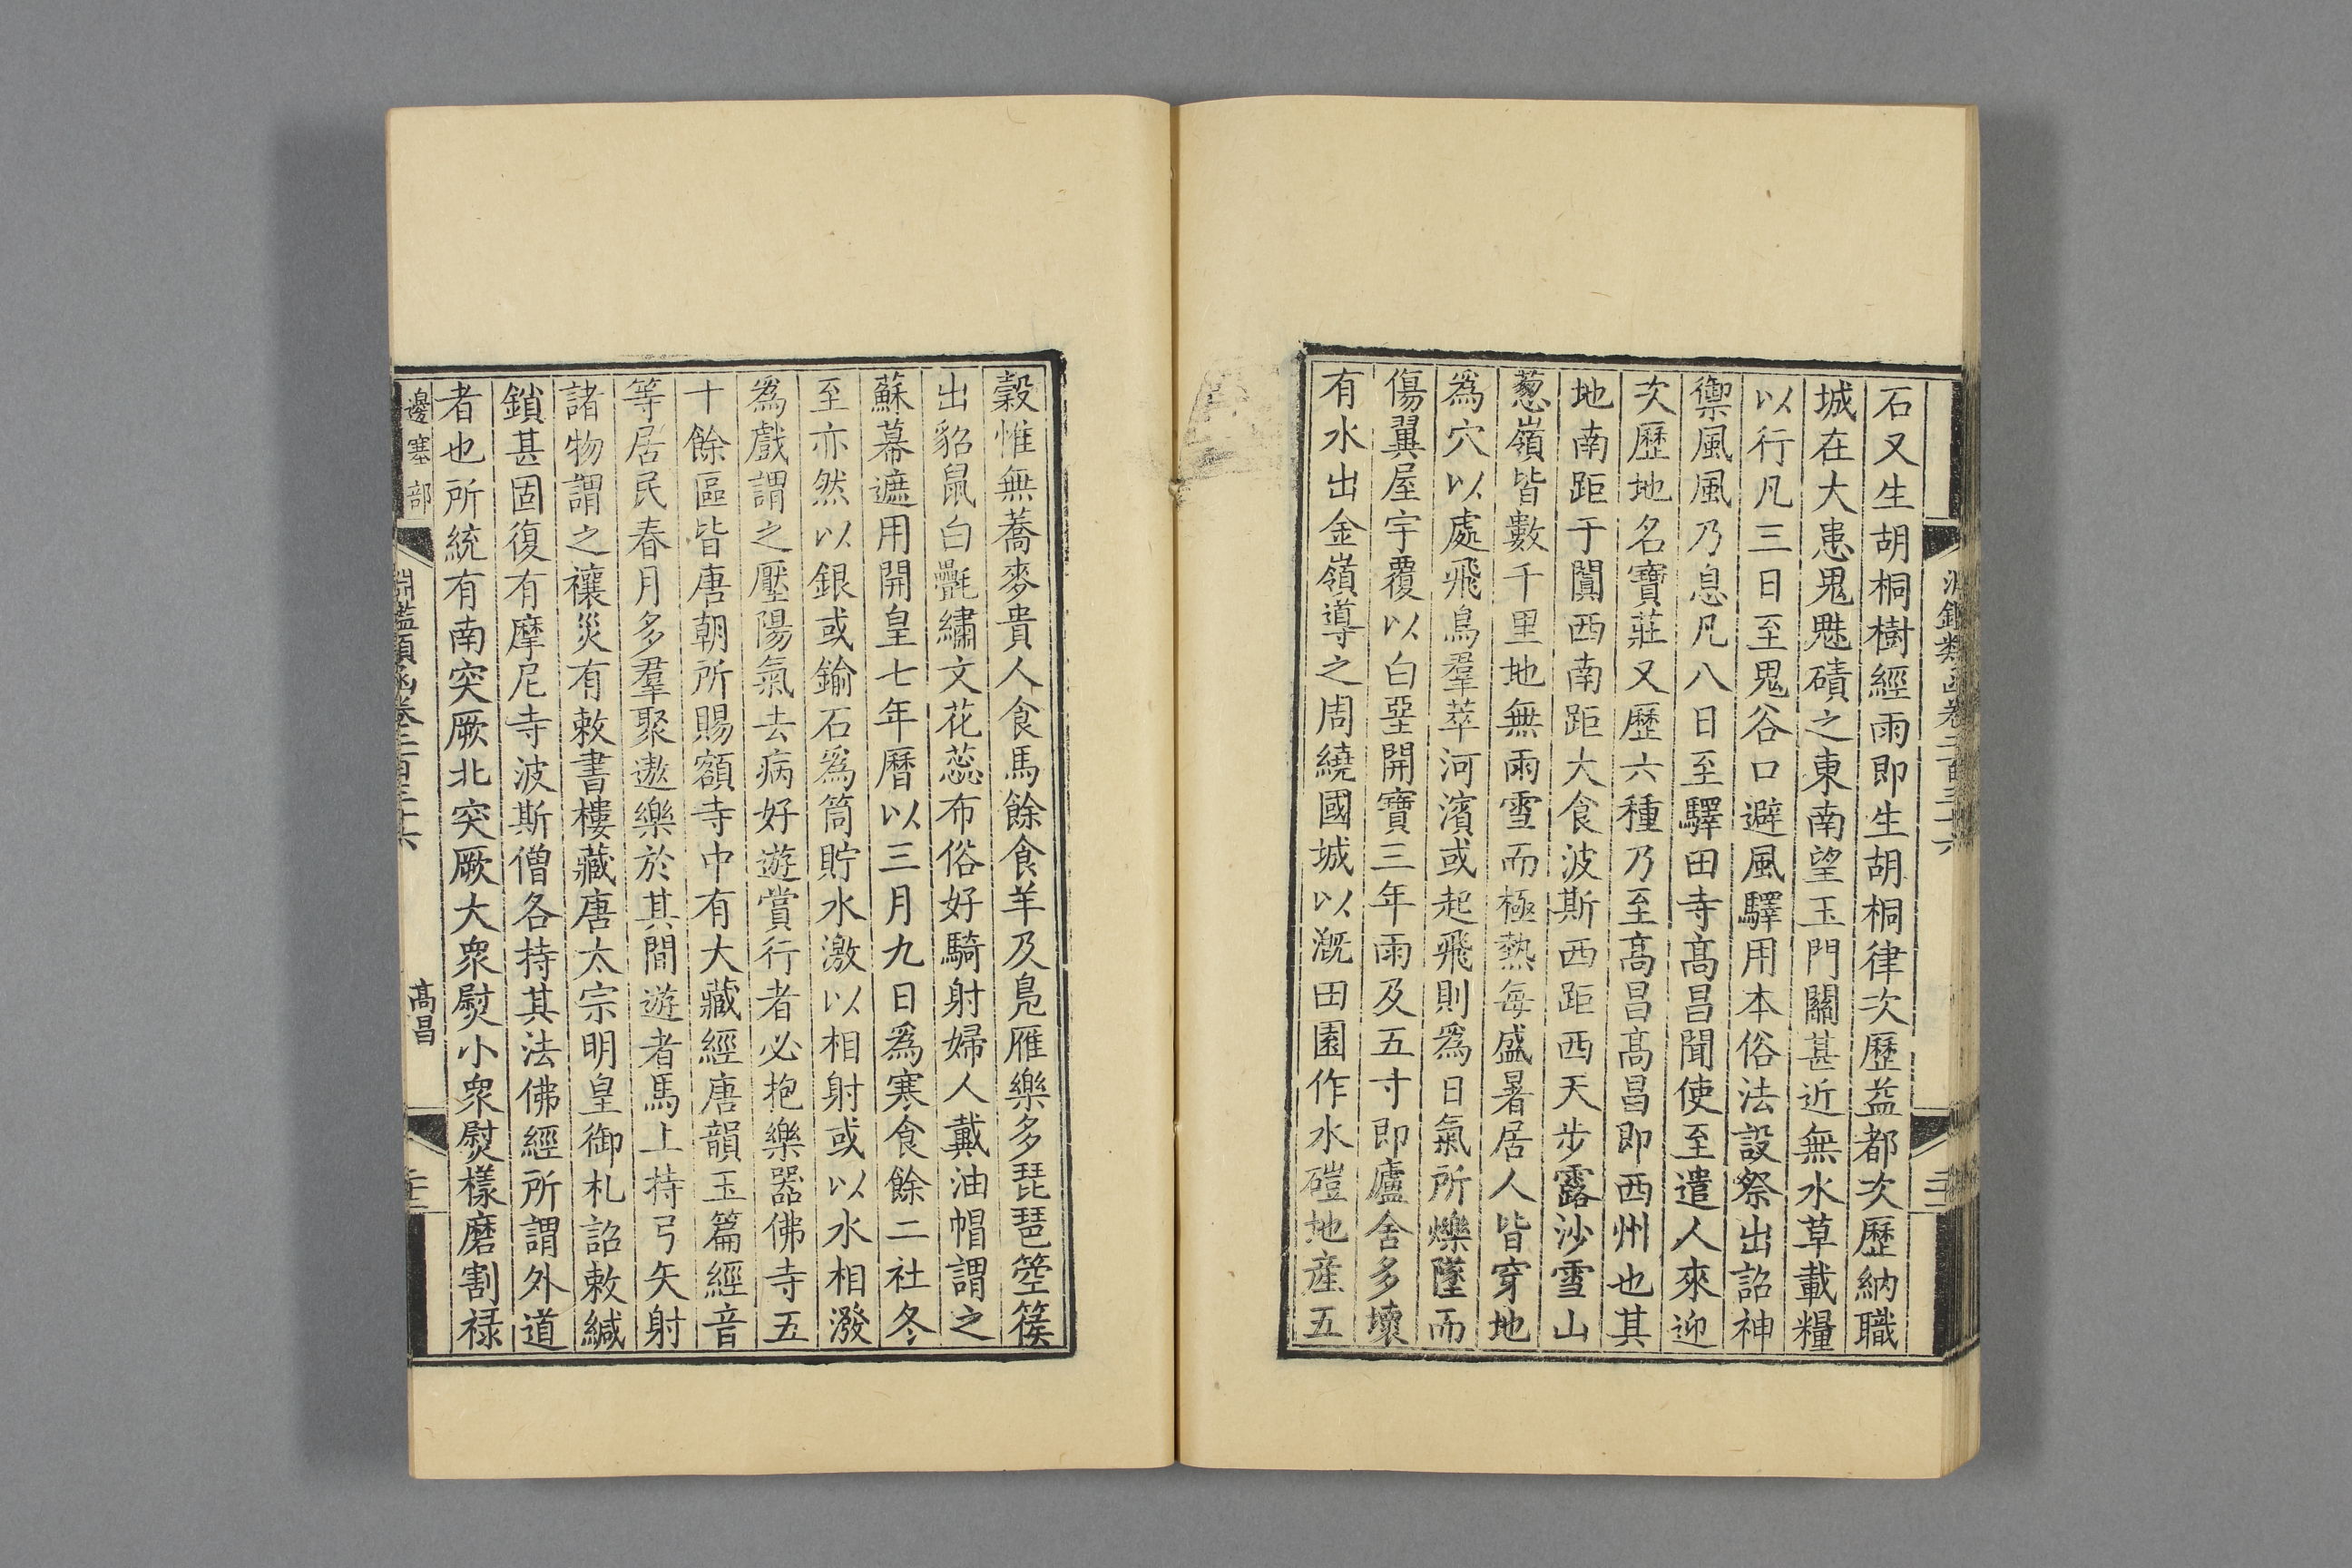 石又生胡桐樹經雨即生胡桐律次歷益都次歷納職
城在大患鬼魅磧之東南望玉門關甚近無水草載糧
以行凡三日至鬼谷口避風驛用本俗法設祭出詔神
禦風風乃息凡八日至驛田寺髙昌聞使至遣人來迎
次歷地名寶莊又歷六種乃至髙昌髙昌即西州也其
地南距于闐西南距大食波斯西距西天步露沙雪山
葱嶺皆數千里地無雨雪而極熱每盛暑居人皆穿地
爲穴以處飛鳥羣萃河濱或起飛則爲日氣所爍墜而
傷翼屋宇覆以白堊開寶三年雨及五寸即廬舍多壞
有水出金嶺導之周繞國城以溉田園作水磑地產五
穀惟無蕎麥貴人食馬餘食羊及鳧雁樂多琵琶箜篌
出貂鼠白㲲繡文花蕊布俗好騎射婦人戴油帽謂之
蘇幕遮用開皇七年曆以三月九日爲寒食餘二社冬
至亦然以銀或鍮石爲筒貯水激以相射或以水相潑
爲戲謂之壓陽氣去病好遊賞行者必抱樂器佛寺五
十餘區皆唐朝所賜額寺中有大藏經唐韻玉篇經音
等居民春月多羣聚遨樂於其間遊者馬上持弓矢射
諸物謂之禳災有敕書樓藏唐太宗明皇御札詔敕緘
鎖甚固復有摩尼寺波斯僧各持其法佛經所謂外道
者也所統有南突厥北突厥大衆熨小衆熨樣磨割祿
邊塞部
淵鑑類函卷二百三十六
髙昌